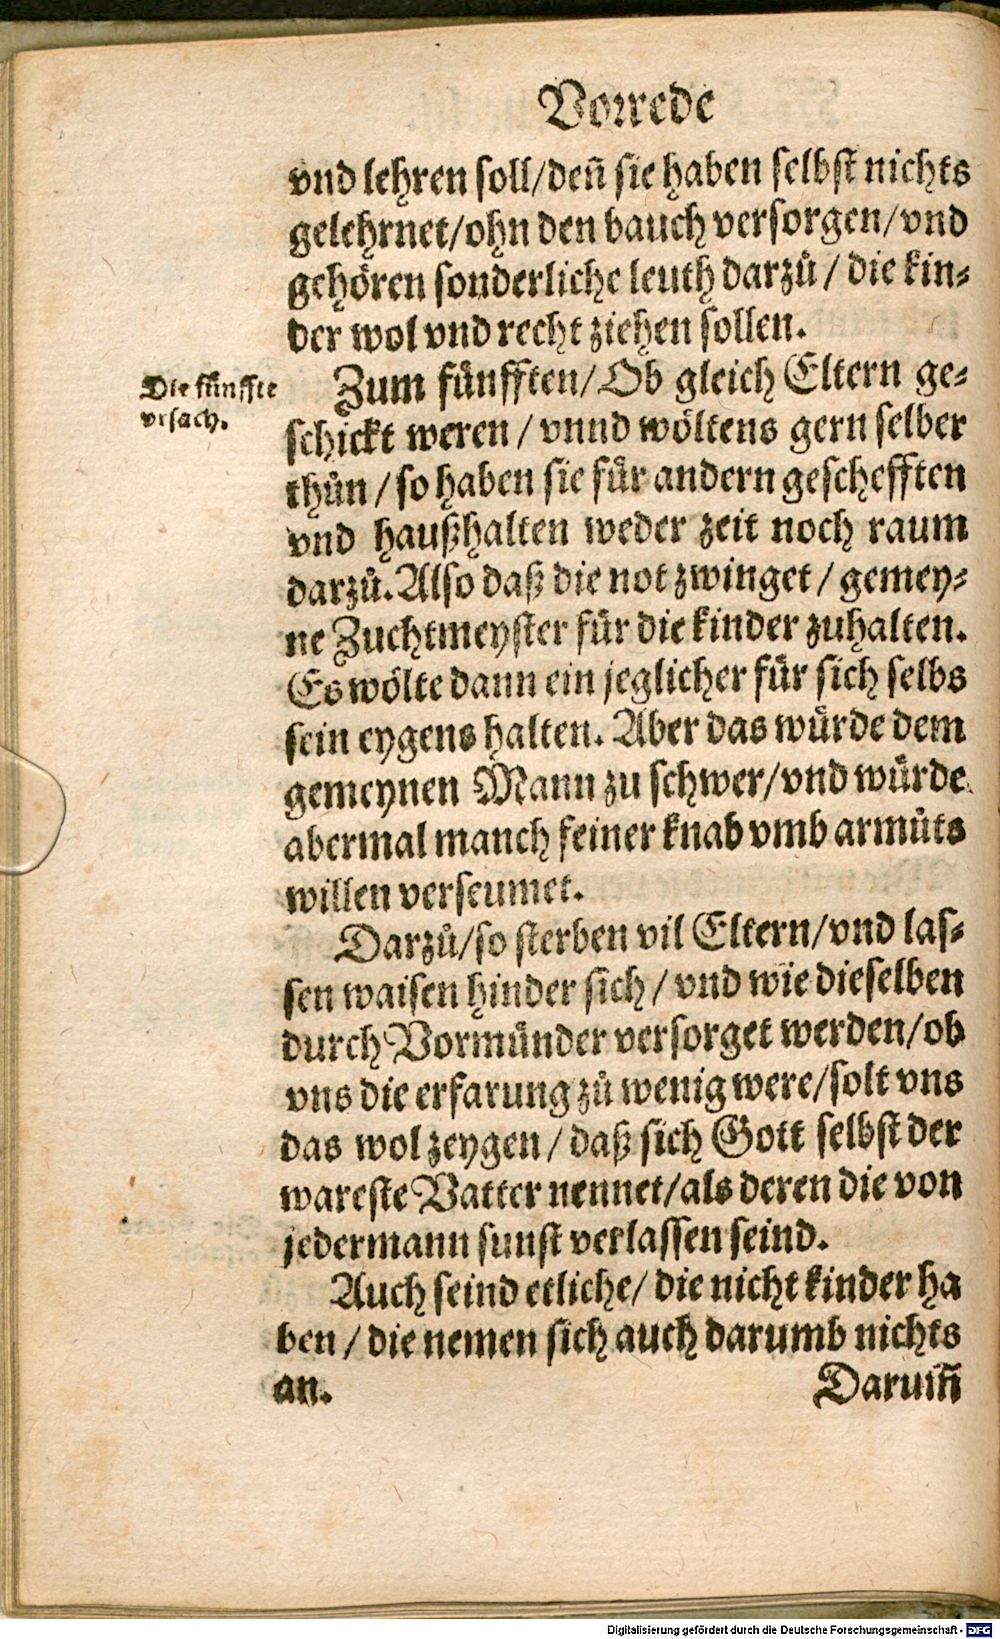 Vorrede
vnd lehren soll/deñ sie haben selbst nichts
gelehrnet/ohn den bauch versorgen/vnd
gehören sonderliche leuth darzů/ die kin⸗
der wol vnd recht ziehen sollen.
Die fünffte
vrsach.
Zum fünfften/ Ob gleich Eltern ge⸗
schickt weren / vnnd wöltens gern selber
thůn / so haben sie für andern geschefften
vnd haußhalten weder zeit noch raum
darzů. Also daß die not zwinget / gemey⸗
ne Zuchtmeyster für die kinder zuhalten.
Es wölte dann ein jeglicher für sich selbs
sein eygens halten. Aber das würde dem
gemeynen Mann zu schwer/vnd würde
abermal manch feiner knab vmb armůts
willen verseumet.
Darzů/so sterben vil Eltern/vnd las⸗
sen waisen hinder sich / vnd wie dieselben
durch Vormünder versorget werden/ob
vns die erfarung zů wenig were/solt vns
das wol zeygen / daß sich Gott selbst der
wareste Vatter nennet/als deren die von
jedermann sunst verlassen seind.
Auch seind etliche/ die nicht kinder ha
ben / die nemen sich auch darumb nichts
an. Darum̃
Digitalisierung gefördert durch die Deutsche Forschungsgemeinschaft - DFG